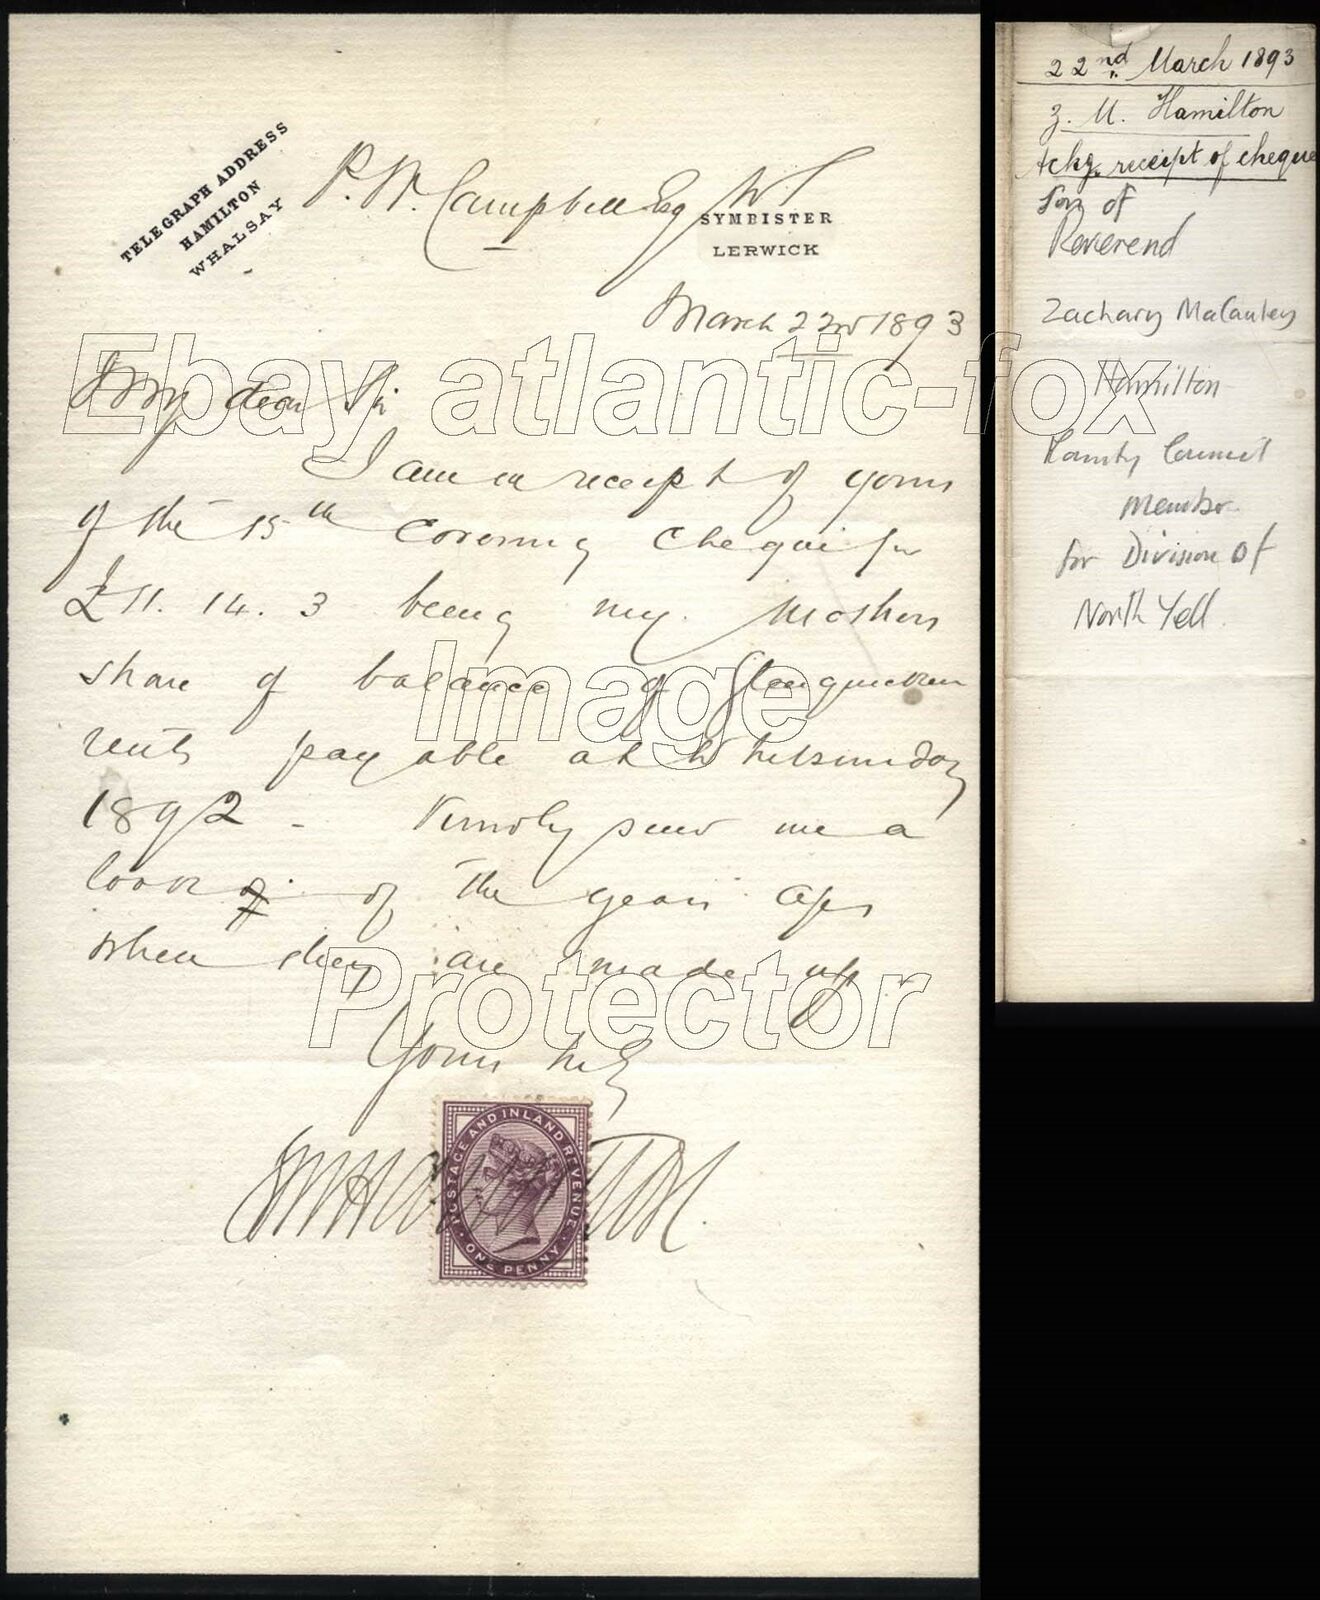 TELEGRAPH ADDRESS
HAMILTON
WHALSAY
P. W. Campbell Esq W S
SYMBISTER
LERWICK
March 22nd 1893
My dear Sir
I am in receipt of yours
of the 15th Covering Cheque for
£11. 14. 3 being my Mothers
share of balance of Glenquicken
rents payable at Whitsunday
1892 - Kindly send me a
look of of the years a/cs
when they are made up.
Yours
POSTAGE AND INLAND REVENUE
ONE PENNY
22nd March 1893
Z. M. Hamilton
Ackg. receipt of cheque
Son of
Reverend
Zachary MaCauley
Hamilton
County Council
Member
for Division of
North Yell.
Ebay atlantic-fox
Image
Protector